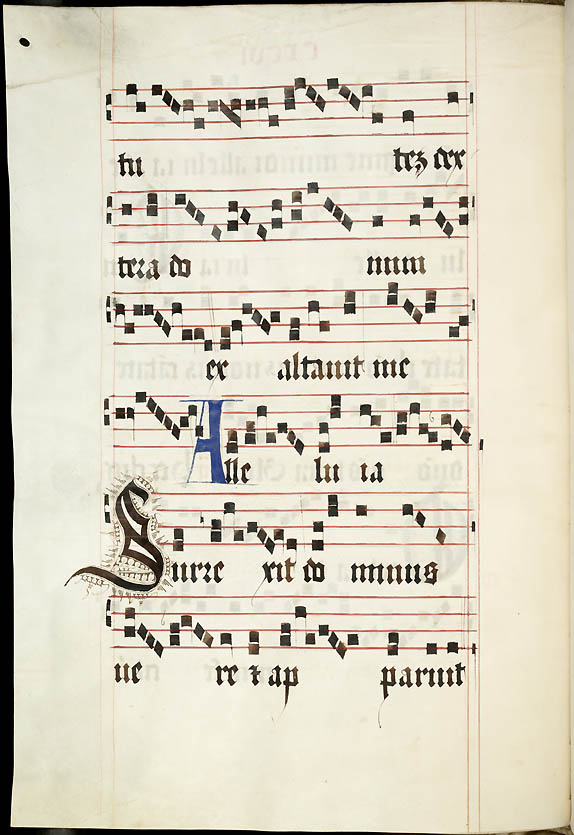 tu tez dex
tera do mum
ex altauit me
Alle lu ia
Surre xit do minus
ue re ⁊ ap paruit